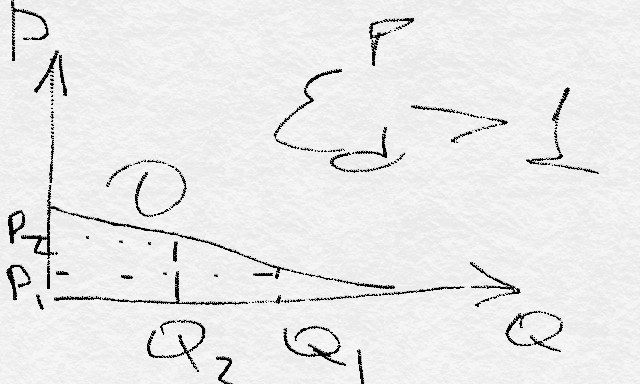 P
εᵖ_d > 1
D
P₂
P₁
Q₂ Q₁ Q